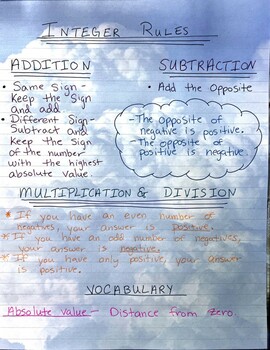 INTEGER RULES
ADDITION
• Same Sign -
Keep the Sign
and add
• Different Sign -
Subtract and
Keep the Sign
of the number
with the highest
absolute value.
SUBTRACTION
• Add the Opposite
- The opposite of
negative is positive.
- The opposite of
positive is negative.
MULTIPLICATION & DIVISION
* If you have an even number of
negatives, your answer is positive.
* If you have an odd number of negatives,
your answer is negative.
* If you have only positive, your answer
is positive.
VOCABULARY
Absolute Value - Distance from zero